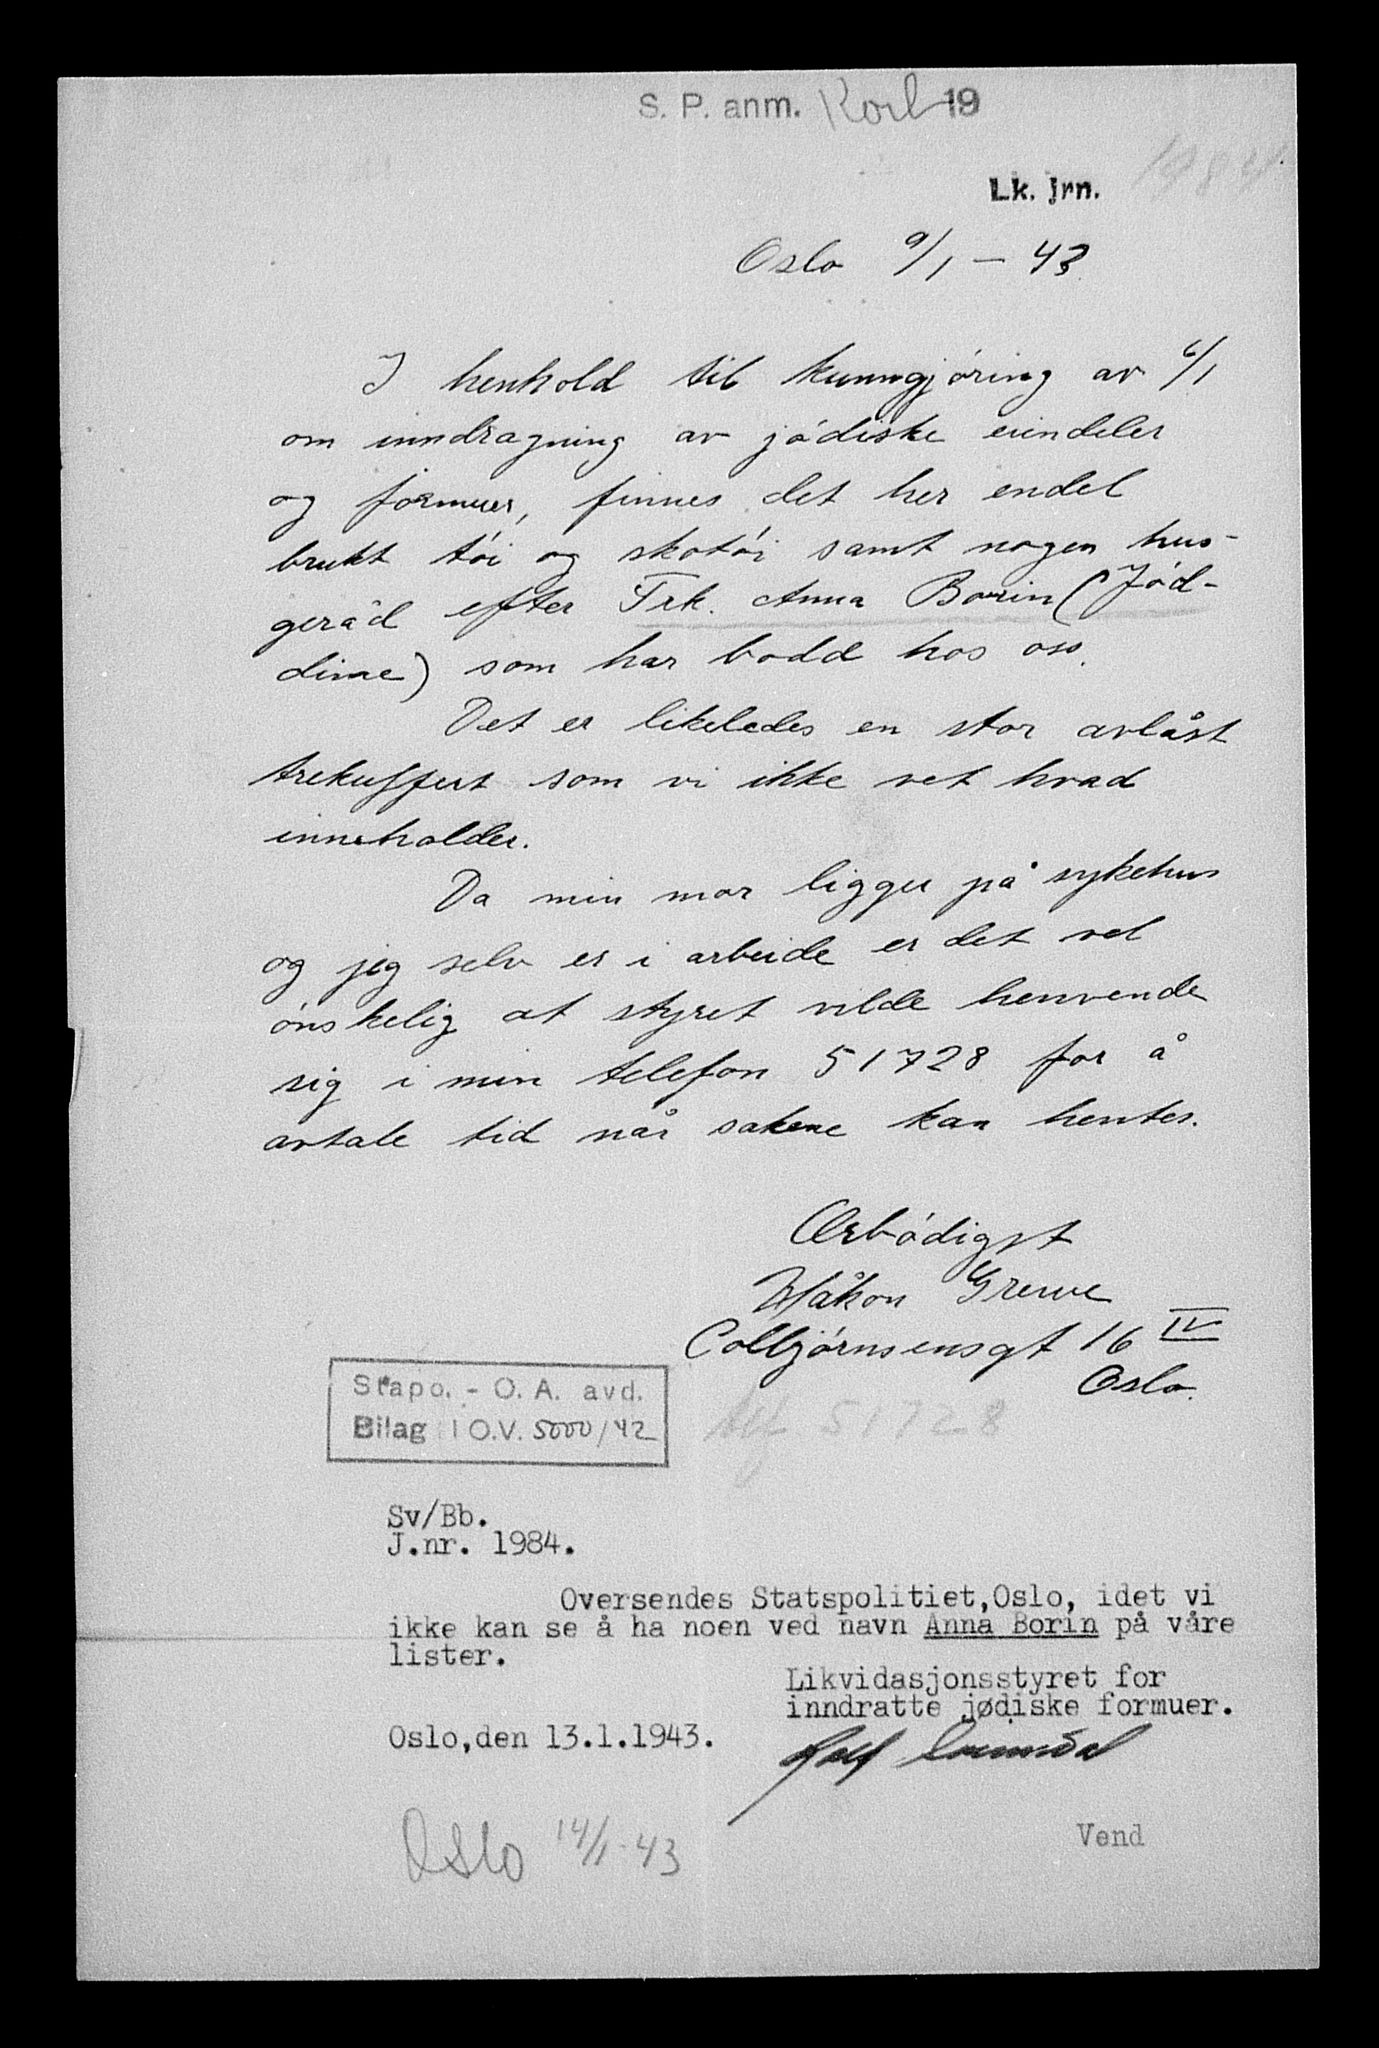 S. P. anm. 19
Lk. jrn. 1984
Oslo 9/1 - 43
I henhold til kunngjøring av 6/1
om inndragning av jødiske eiendeler
og formuer, finnes det her endel
brukt tøi og skotøi samt nogen hus-
geråd efter Frk. Anna Borin (Jød-
dinne) som har bodd hos oss.
Det er likeledes en stor avlåst
trekuffert som vi ikke vet hvad
inneholder.
Da min mor ligger på sykehus
og jeg selv er i arbeide er det vel
ønskelig at styret vilde henvende
sig i min telefon 51728 for å
avtale tid når sakene kan hentes.
Ærbødigst
Håkon Greuve
Colbjørnsensgt 16 IV
Oslo.
Stapo. - O. A. avd.
Bilag i O.V. 5000/42
tlf 51728
Sv/Bb.
J.nr. 1984.
Oversendes Statspolitiet,Oslo, idet vi
ikke kan se å ha noen ved navn Anna Borin på våre
lister.
Likvidasjonsstyret for
inndratte jødiske formuer.
Oslo,den 13.1.1943.
Rolf
Vend
Oslo 14/1-43